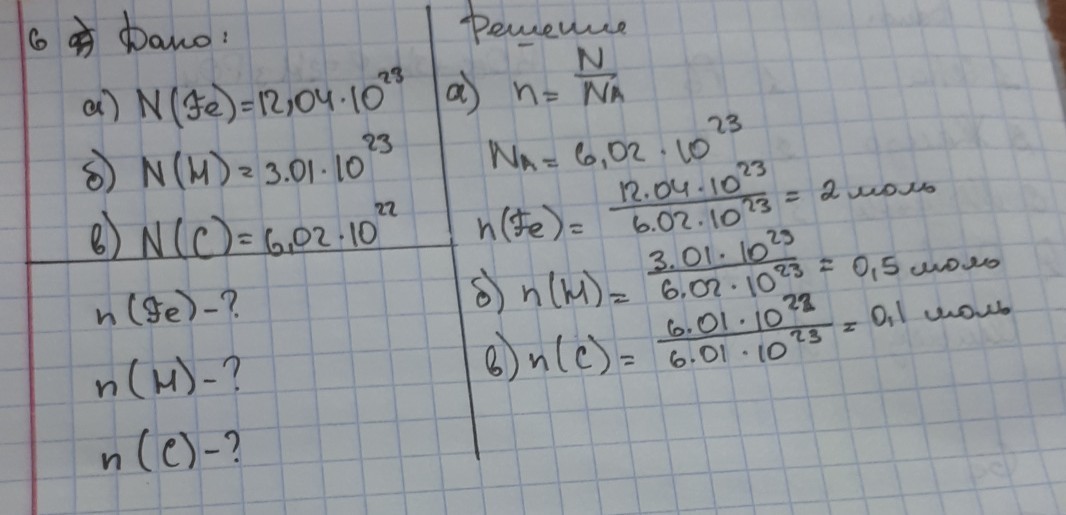 6 Дано:
а) N(Fe)=12,04·10²³
б) N(H)=3.01·10²³
в) N(C)=6,02·10²²
n(Fe)-?
n(H)-?
n(C)-?
Решение
а) n= N/NA
NA=6,02·10²³
n(Fe)= 12.04·10²³/6.02·10²³ = 2 моль
б) n(H)= 3.01·10²³/6.02·10²³ = 0,5 моль
в) n(C)= 6.01·10²²/6.01·10²³ = 0,1 моль